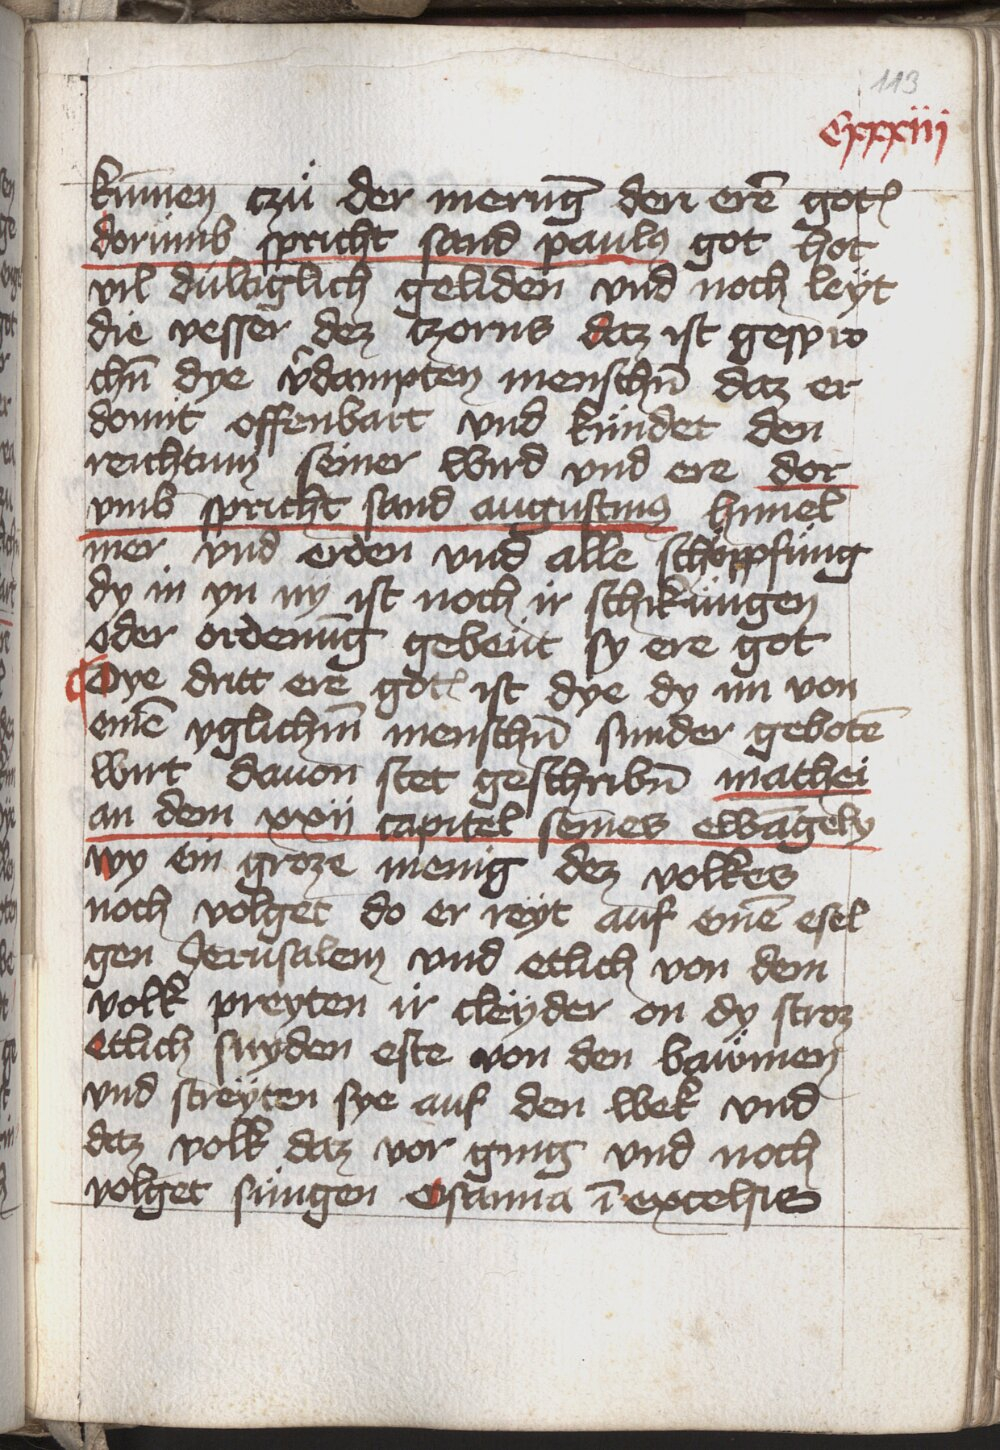 113
Cxxxiii
kumen czü der merūg den erē gotz
dorümb spricht sand paulus got hot
vil dultiglich geliden vnd noch leÿt
die vesser dez czorns daz ist gespro
chn̄ dye v̂dampten menschn̄ daz er
domit offenbart vnd kündet den
reichtum seiner wird vnd ere dor
vmb spricht sand augustinus himel
mer vnd erden vnd alle schöppfüng
dy in yn ny ist noch ir schiküngen
oder ordenūg gebeüt sy ere got
Dye dritt erē gotz ist dye dy im von
einē yglichm̄ menschn̄ sunder gebotē
wirt dauon stet geschribn̄ mathei
an dem xxii capitel seines ewāgely
wy ein groze menig dez volkes
noch volget do er reyt auf einē esel
gen Jerusalem vnd etlich von dem
volk preyten ir cleÿder on dy stroz
etlich snyden este von den baümen
vnd streÿten sye auf den wek vnd
daz volk daz vor ging vnd noch
volget süngen Osanna ī excelsis